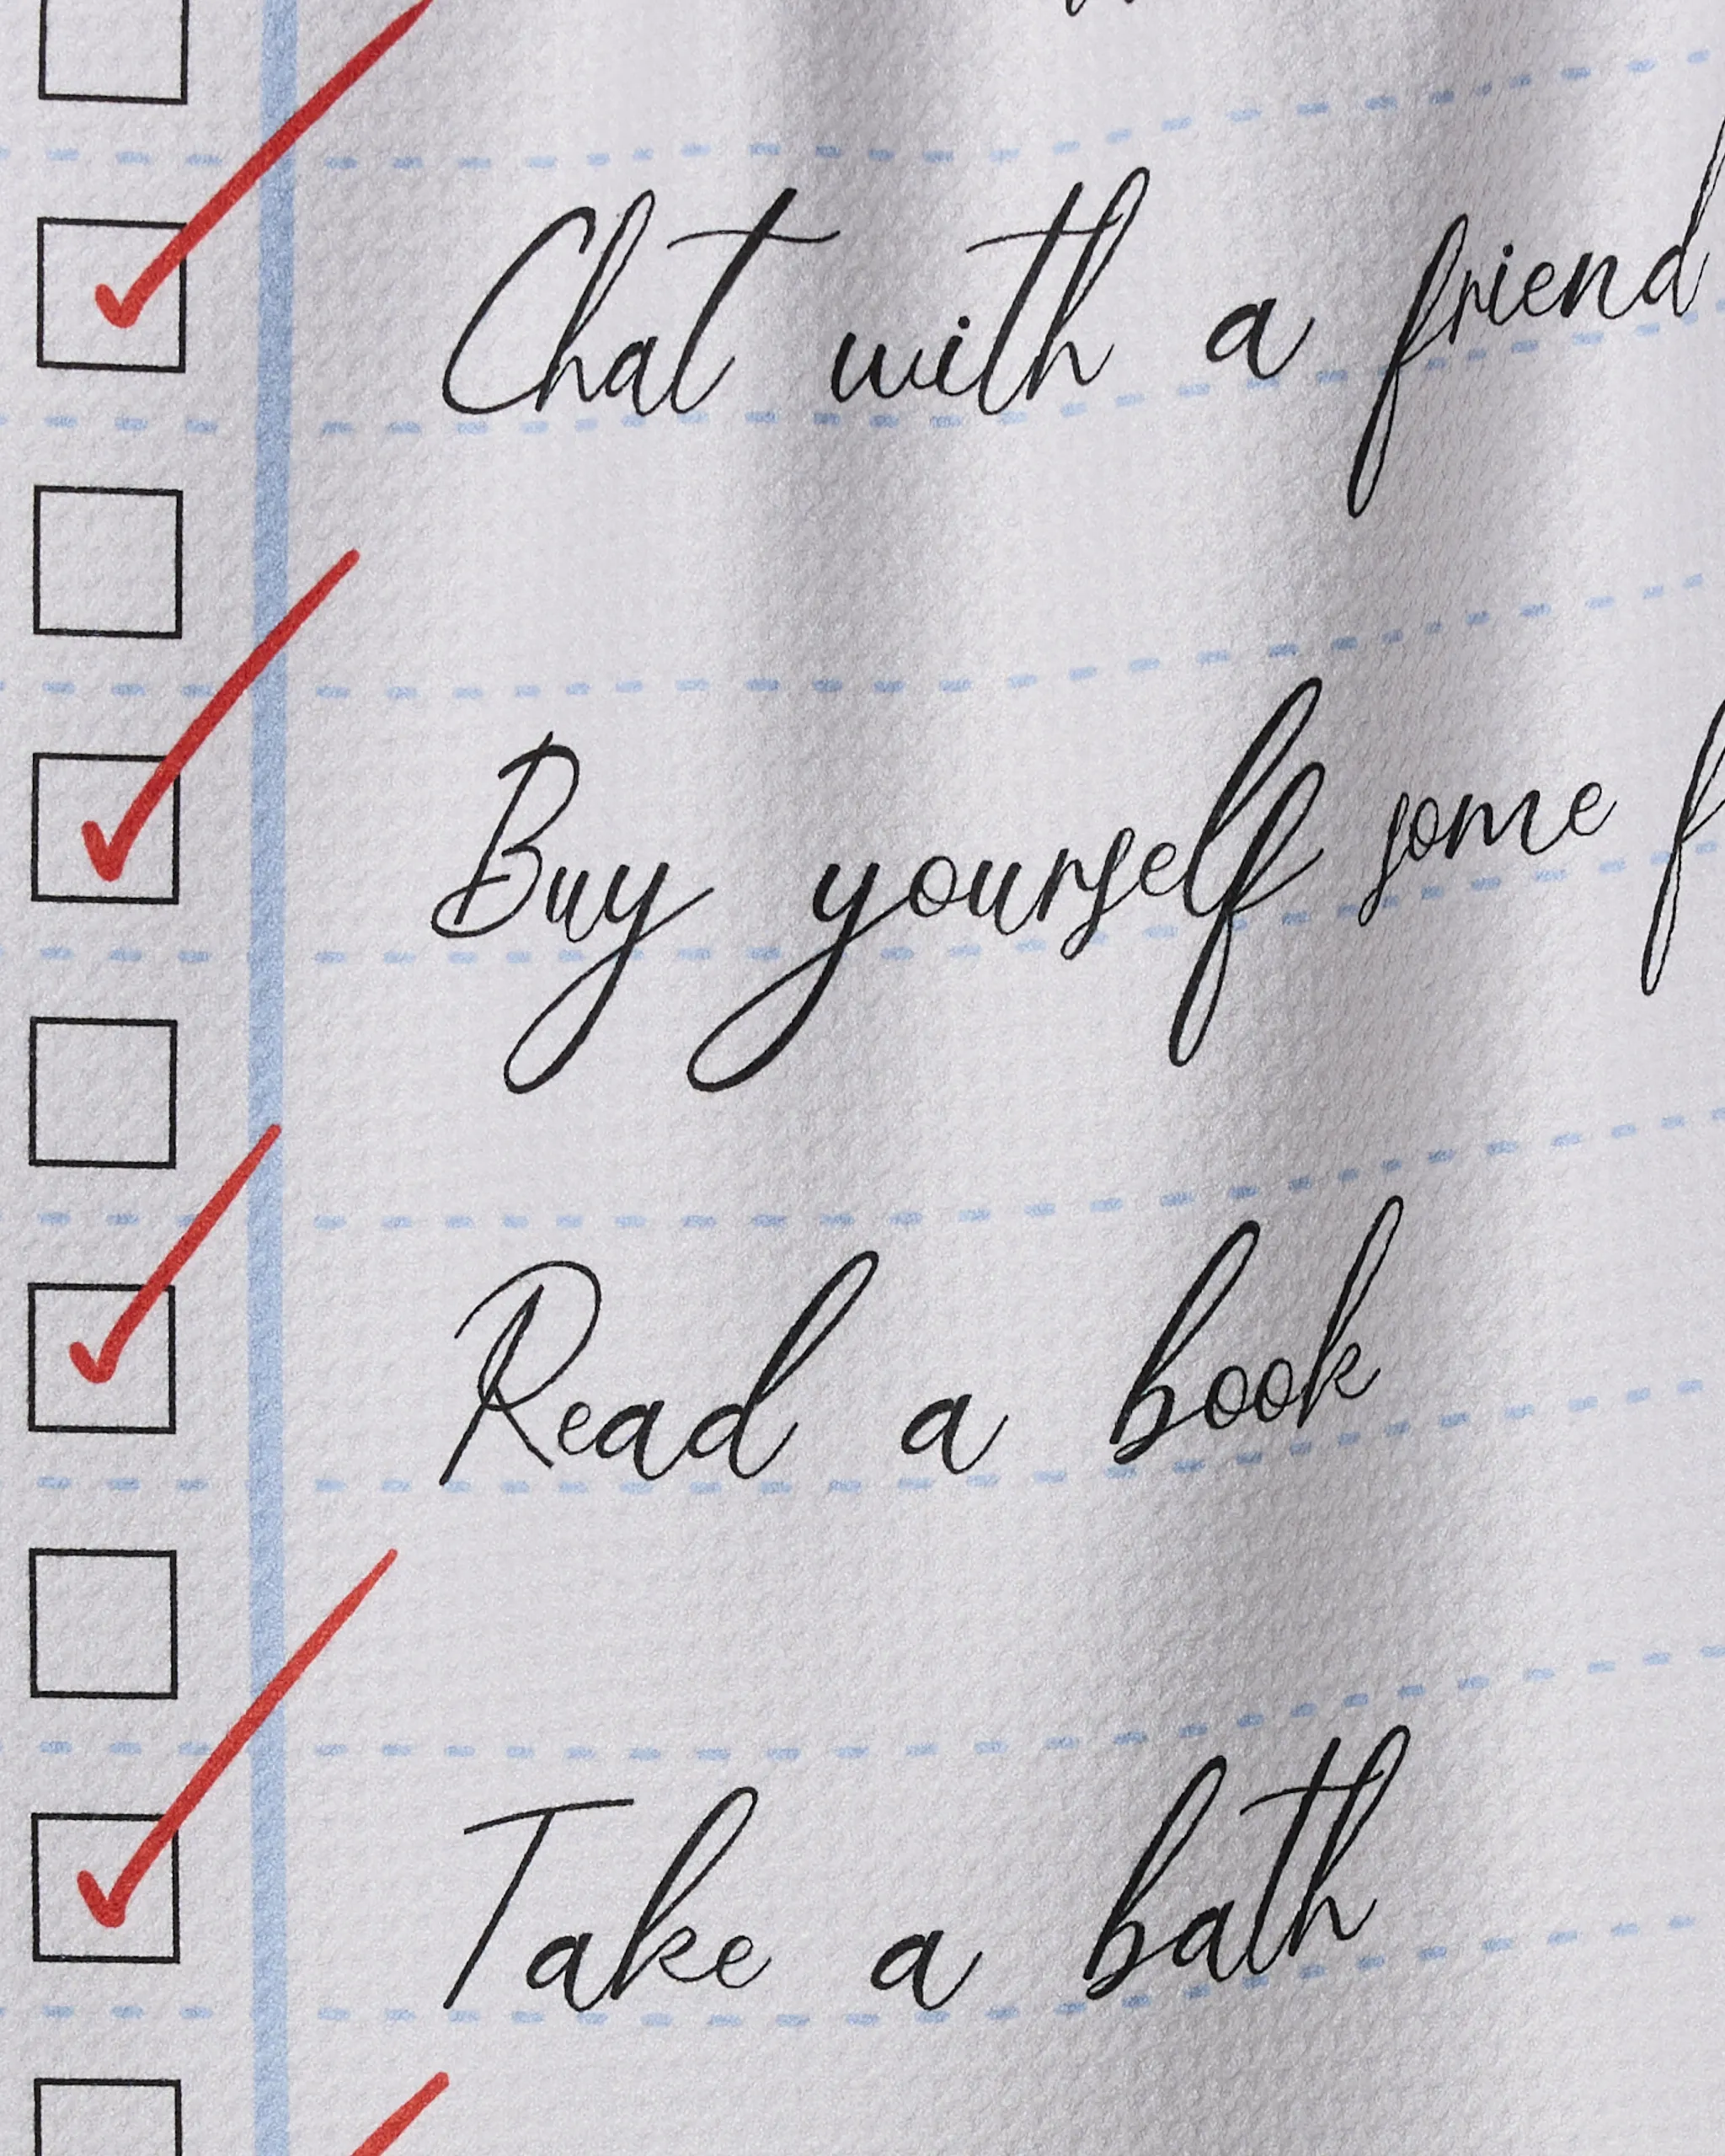 Chat with a friend
Buy yourself some
Read a book
Take a bath